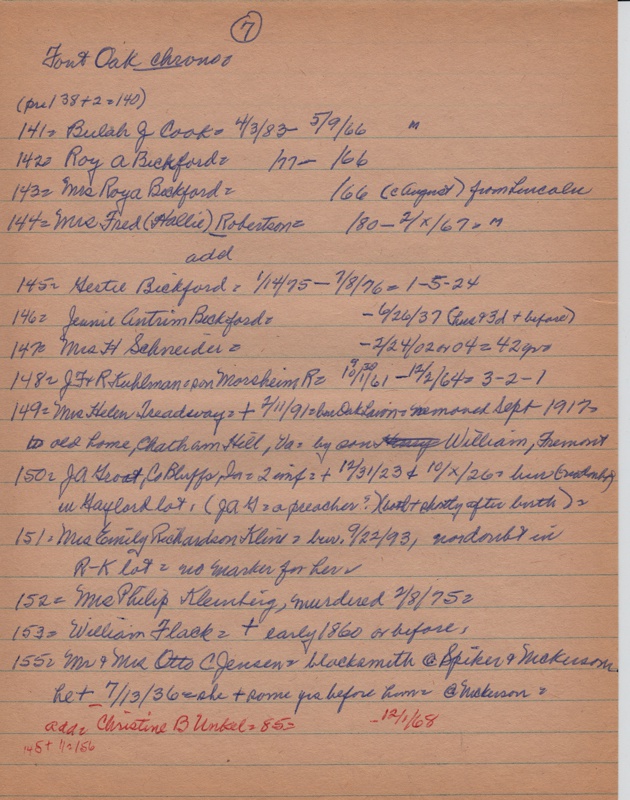 7
Font Oak chrono=
(pre 138+2=140)
141= Bulah J Cook= 4/3/83- 5/9/66 m
142= Roy A Bickford= /77- /66
143= Mrs Roy A Bickford= /66 (c August) from Lincoln
144= Mrs Fred (Hallie) Robertson= /80 - 2/x/67= m
add
145= Gertie Bickford= 1/14/75 - 7/8/76= 1-5-24
146= Jennie Antrim Bickford= -6/26/37 (hus + 3d + before)
147= Mrs H Schneider= -2/24/02 or 04= 42 yrs
148= J F & R Kuhlman= son Morsheim R= 10/1/61 9/30 - 12/2/64= 3-2-1
149= Mrs Helen Treadway= + 2/11/91= bur Oak = removed Sept 1917=
to old home, Chatham Hill, Va= by son William, Fremont
150= J A Groat, Co Bluffs, Ia= 2 inf= + 12/31/23 & 10/x/26= bur
in Gaylord lot. (J A G= a preacher?) (both + shortly after birth)=
151= Mrs Emily Richardson Kline= bur. 9/22/93, no doubt in
R-K lot= no marker for her=
152= Mrs Philip Kleinberg, murdered 2/8/75=
153= William Flack= + early 1860 or before.
155= Mr & Mrs Otto C Jensen= blacksmith @ Spiker & Nickerson
he + 7/13/36= she + some yrs before him= @ Nickerson=
add= Christine B Unkel= 85= -12/1/68
145+11=156